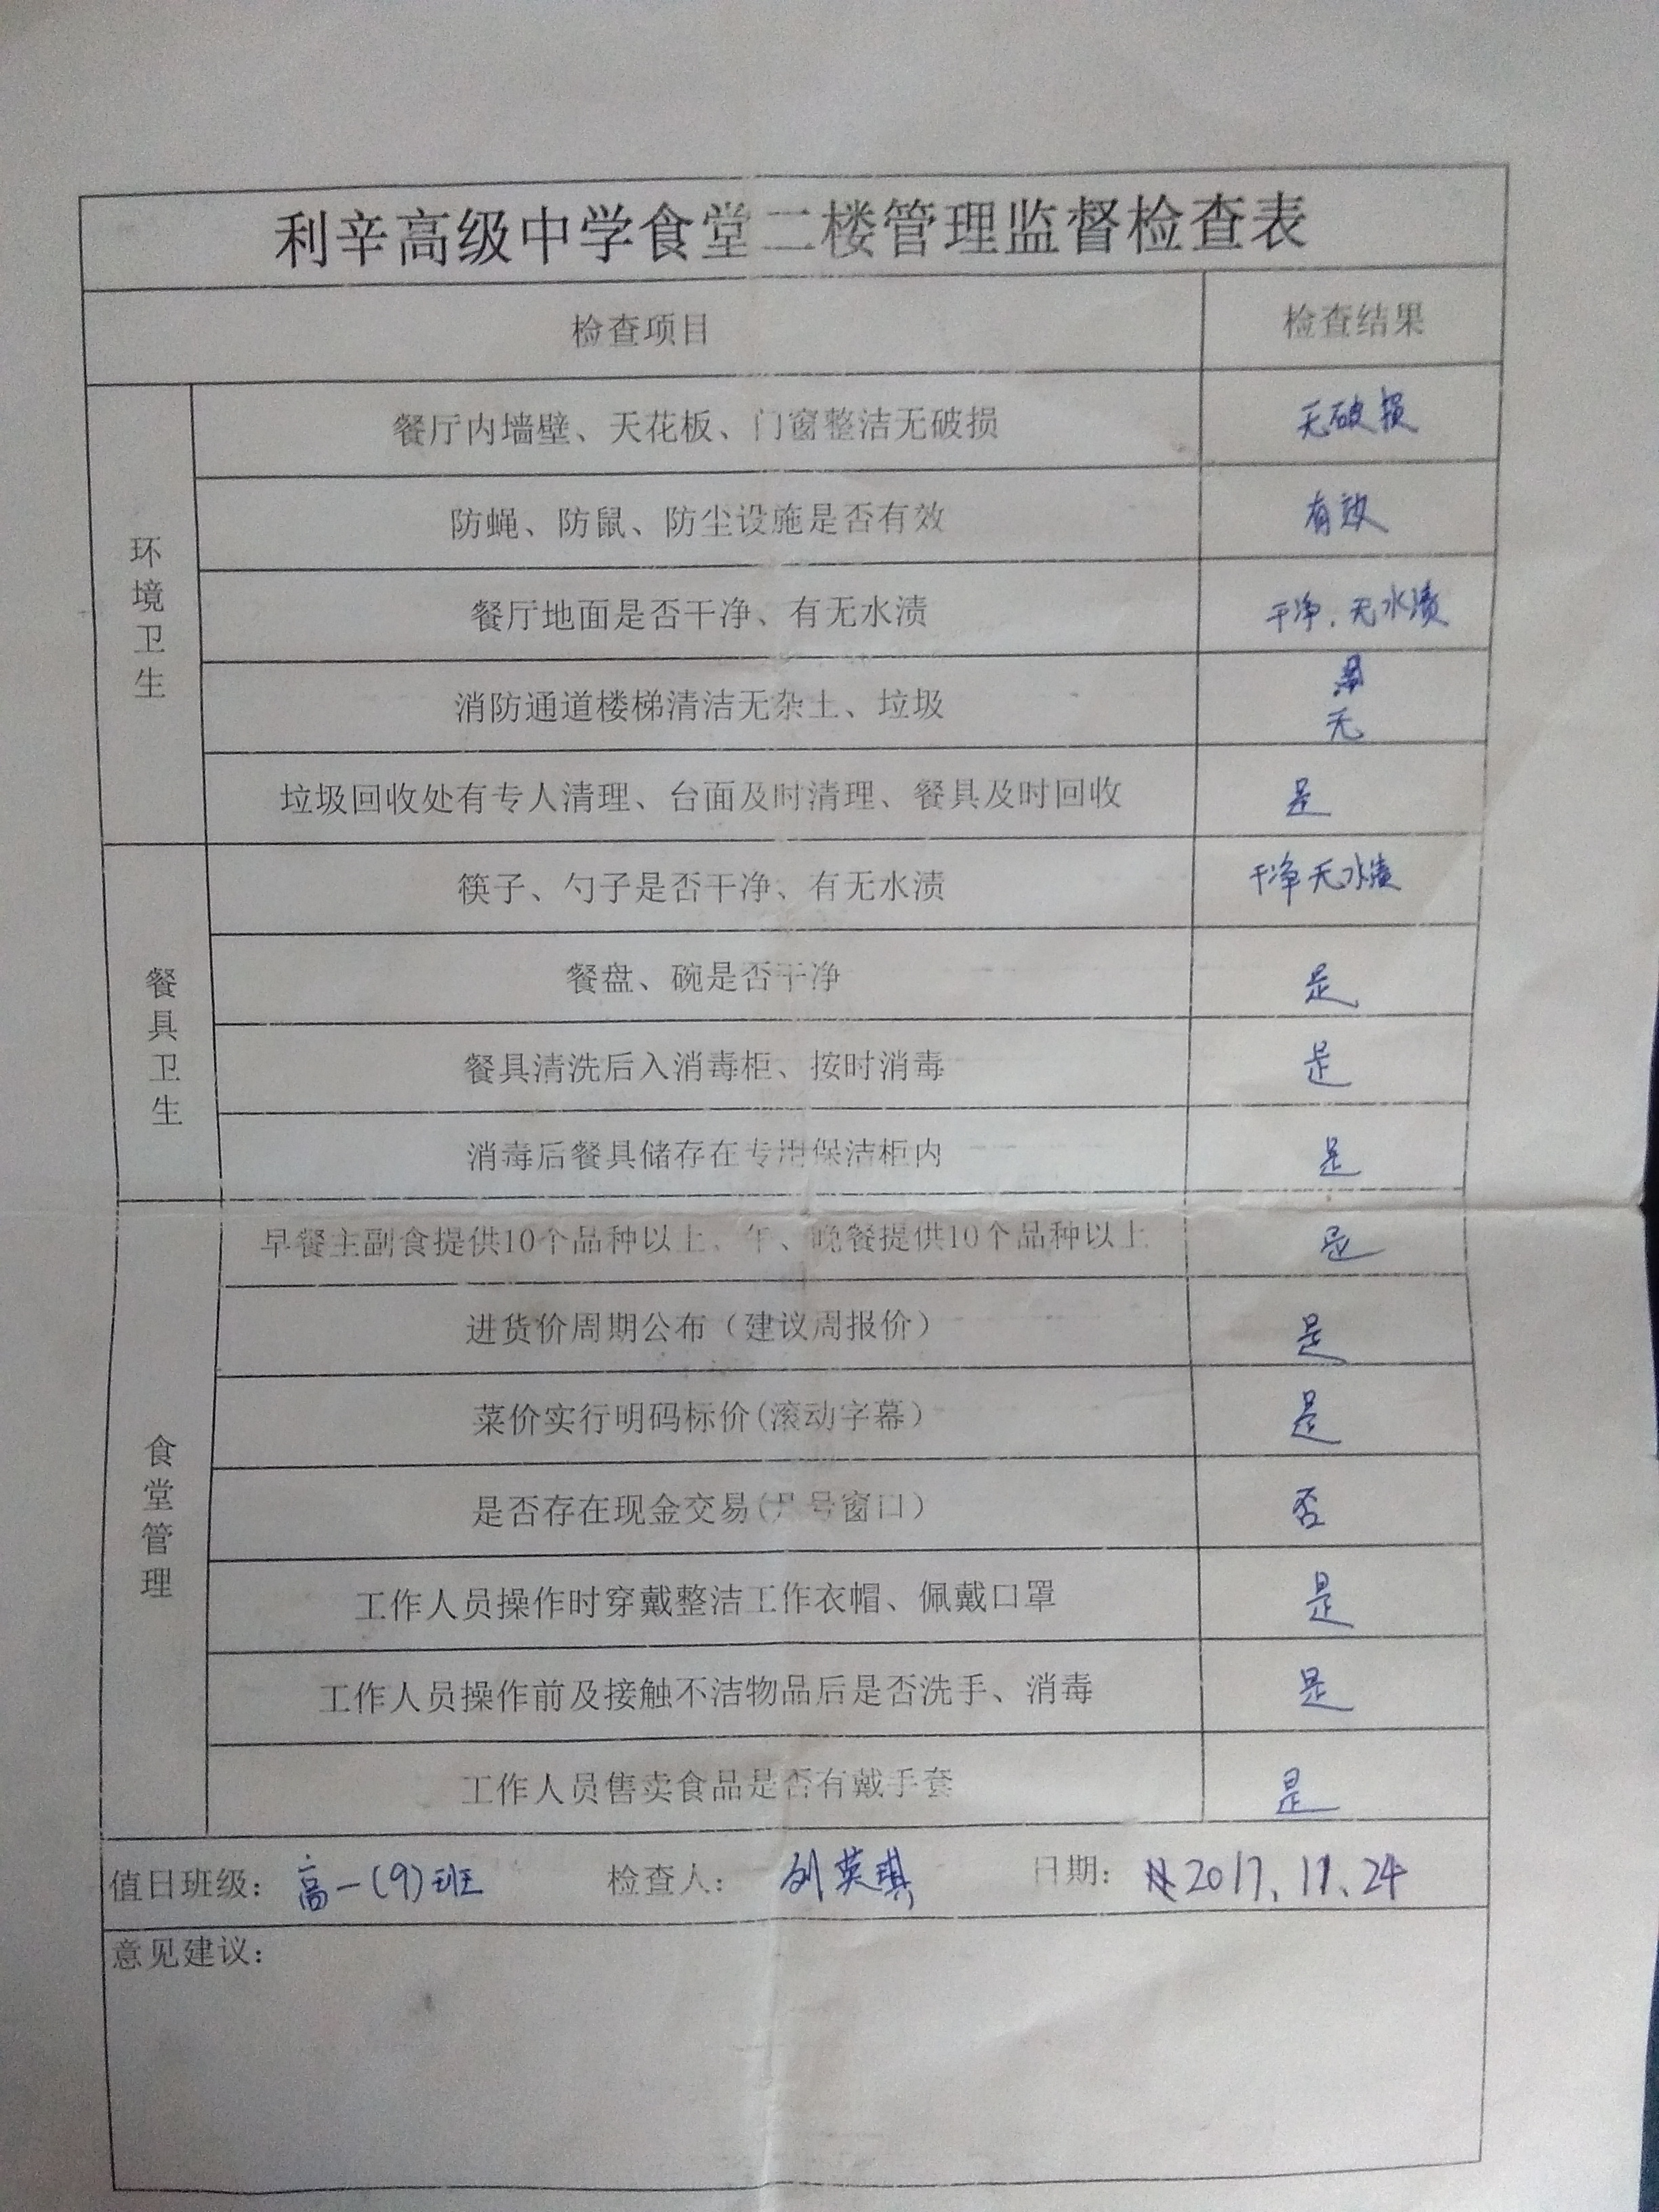 利辛高级中学食堂二楼管理监督检查表
检查项目 检查结果
环境卫生
餐厅内墙壁、天花板、门窗整洁无破损 无破损
防蝇、防鼠、防尘设施是否有效 有效
餐厅地面是否干净、有无水渍 干净.无水渍
消防通道楼梯清洁无杂土、垃圾 无
垃圾回收处有专人清理、台面及时清理、餐具及时回收 是
餐具卫生
筷子、勺子是否干净、有无水渍 干净无水渍
餐盘、碗是否干净 是
餐具清洗后入消毒柜、按时消毒 是
消毒后餐具储存在专用保洁柜内 是
食堂管理
早餐主副食提供10个品种以上、午、晚餐提供10个品种以上 是
进货价周期公布（建议周报价） 是
菜价实行明码标价(滚动字幕） 是
是否存在现金交易( 号窗口） 否
工作人员操作时穿戴整洁工作衣帽、佩戴口罩 是
工作人员操作前及接触不洁物品后是否洗手、消毒 是
工作人员售卖食品是否有戴手套 是
值日班级：高一(9)班 检查人：刘英琪 日期：2017.11.24
意见建议：